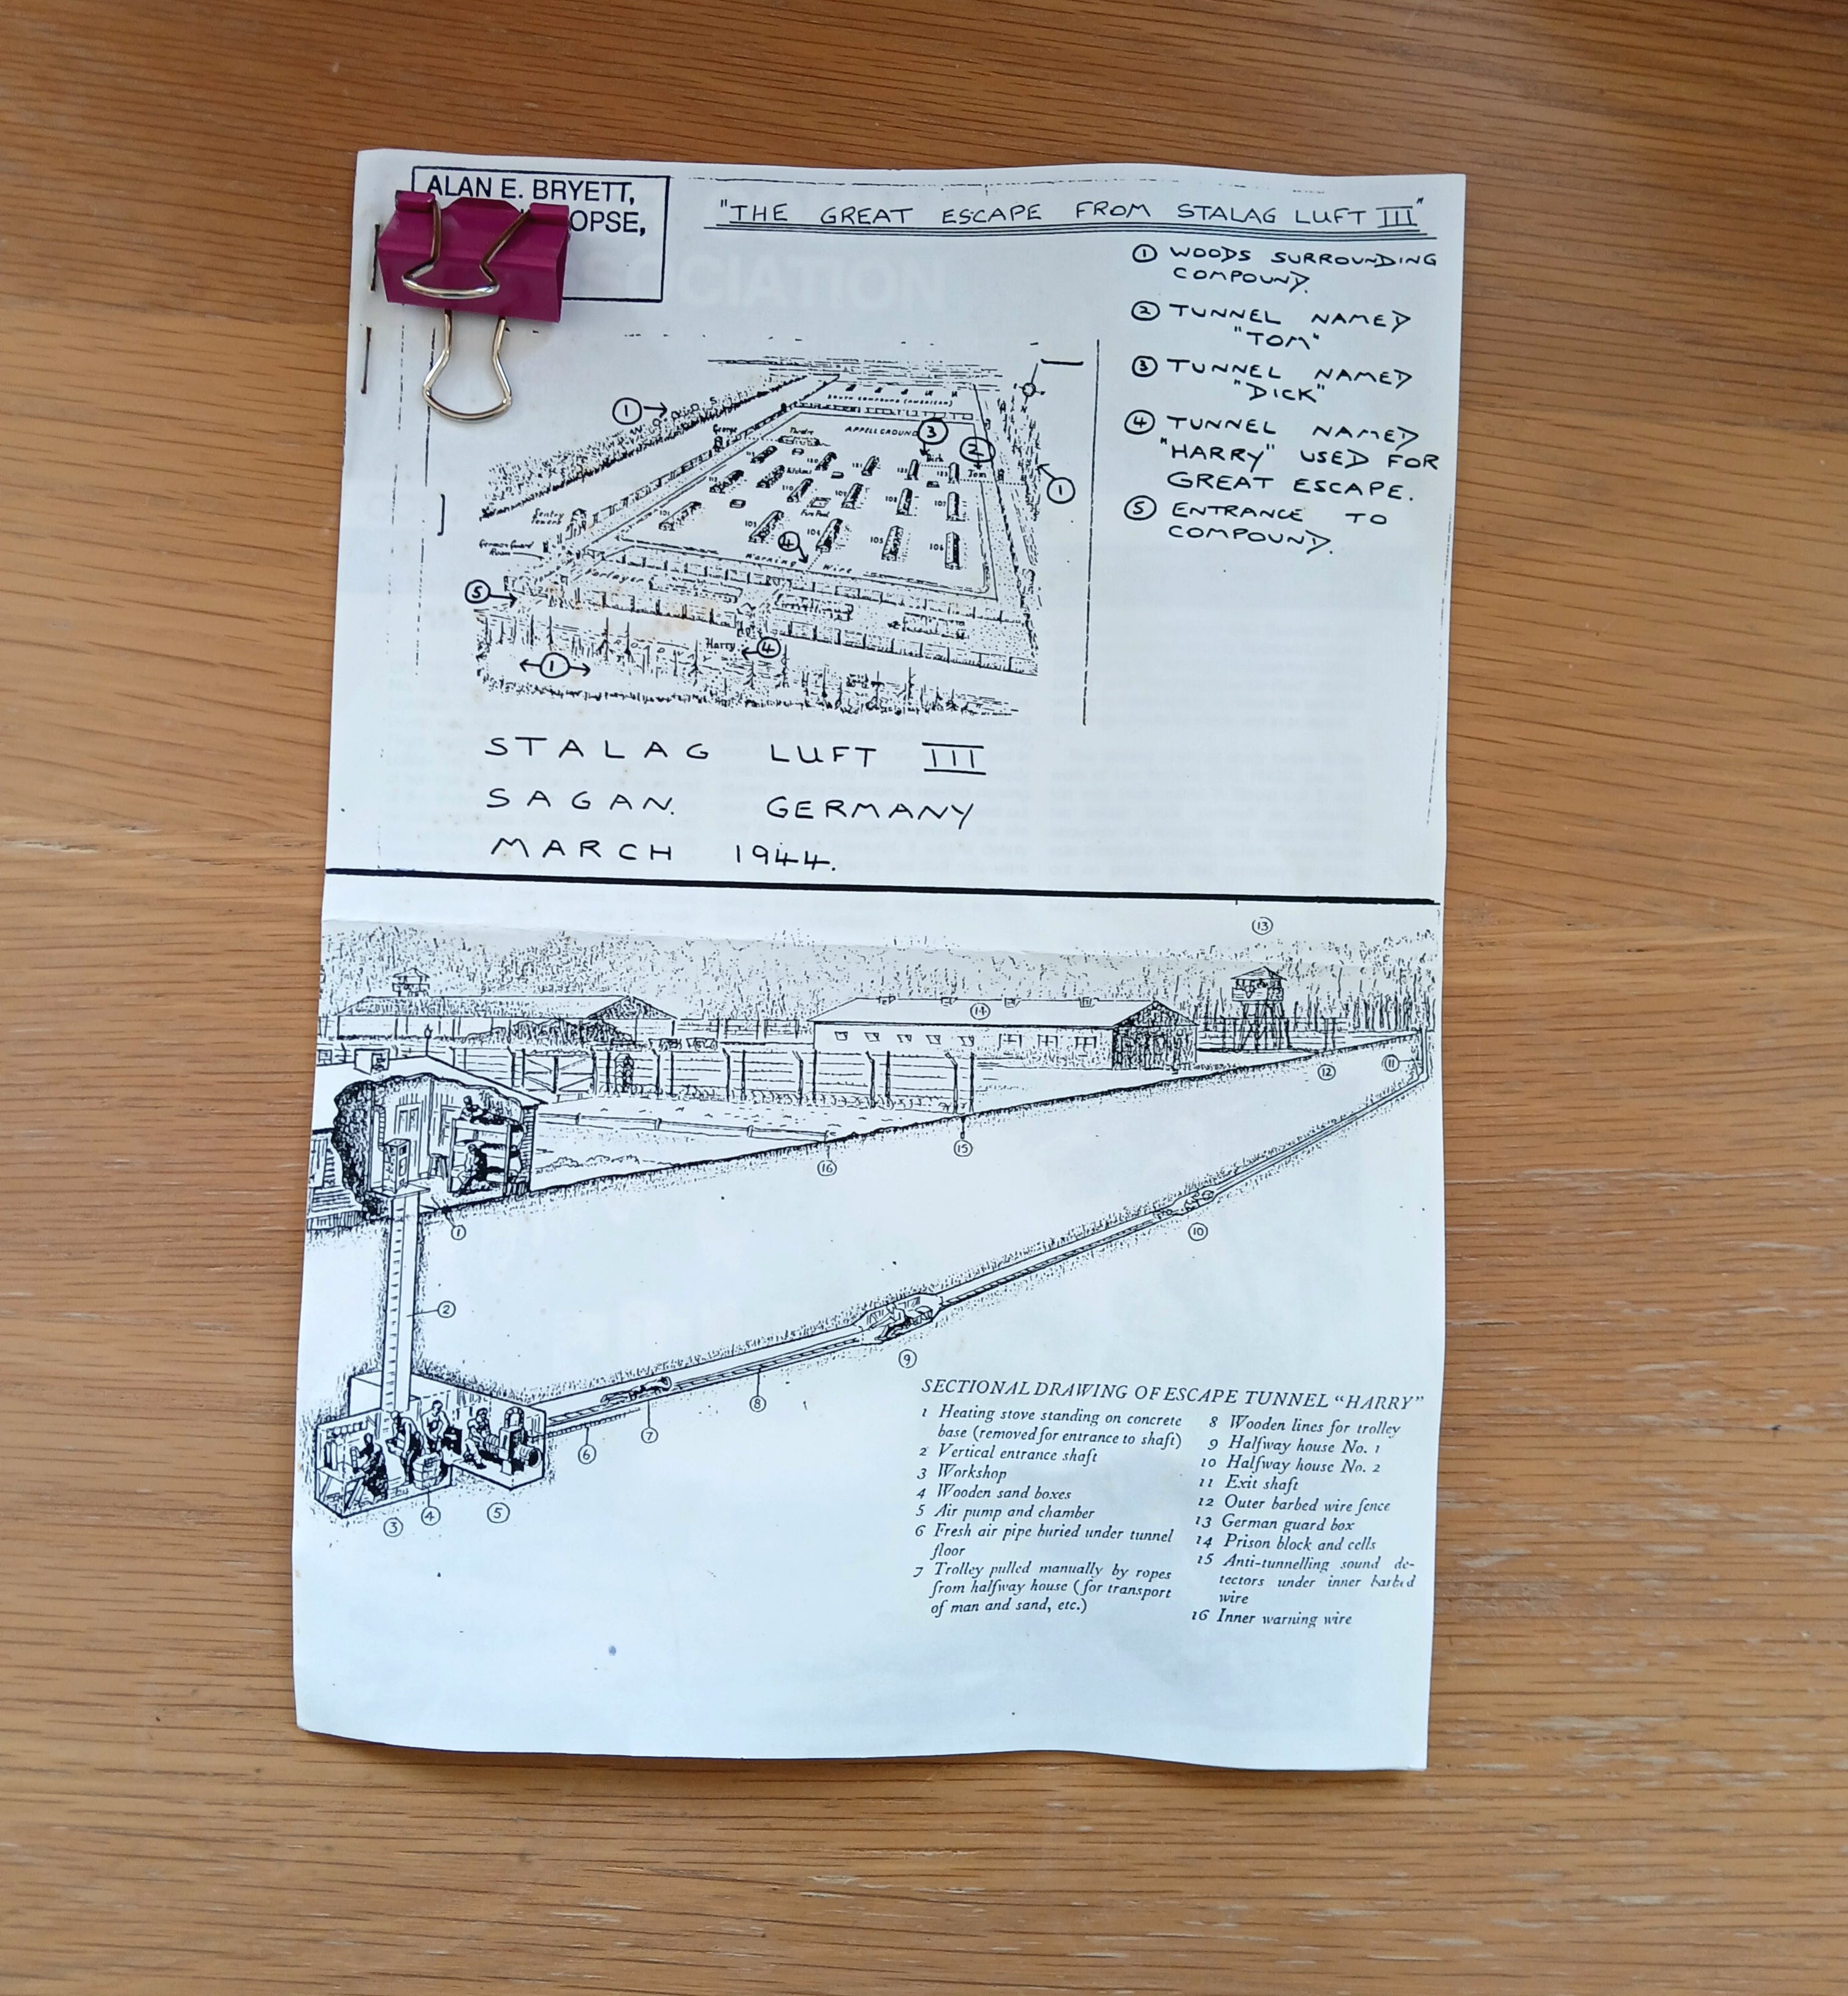 ALAN E. BRYETT,
OPSE,
"THE GREAT ESCAPE FROM STALAG LUFT III"
① WOODS SURROUNDING
COMPOUND.
② TUNNEL NAMED
"TOM"
③ TUNNEL NAMED
"DICK"
④ TUNNEL NAMED
"HARRY" USED FOR
GREAT ESCAPE.
⑤ ENTRANCE TO
COMPOUND.
SOUTH COMPOUND (AMERICAN)
① WOODS
APPELLGROUND
③
George
Theatre
Dick
②
Tom
①
Kitchens
Fire Pool
101
103
104
105
106
107
108
109
110
112
120
121
122
123
Sentry
Towers
German Guard
Room
④
Warning Wire
Vorlager
⑤
Harry ④
①
STALAG LUFT III
SAGAN. GERMANY
MARCH 1944.
13
14
12
11
15
16
1
10
2
9
8
7
6
5
4
3
SECTIONAL DRAWING OF ESCAPE TUNNEL "HARRY"
1 Heating stove standing on concrete
base (removed for entrance to shaft)
2 Vertical entrance shaft
3 Workshop
4 Wooden sand boxes
5 Air pump and chamber
6 Fresh air pipe buried under tunnel
floor
7 Trolley pulled manually by ropes
from halfway house (for transport
of man and sand, etc.)
8 Wooden lines for trolley
9 Halfway house No. 1
10 Halfway house No. 2
11 Exit shaft
12 Outer barbed wire fence
13 German guard box
14 Prison block and cells
15 Anti-tunnelling sound de-
tectors under inner barbed
wire
16 Inner warning wire